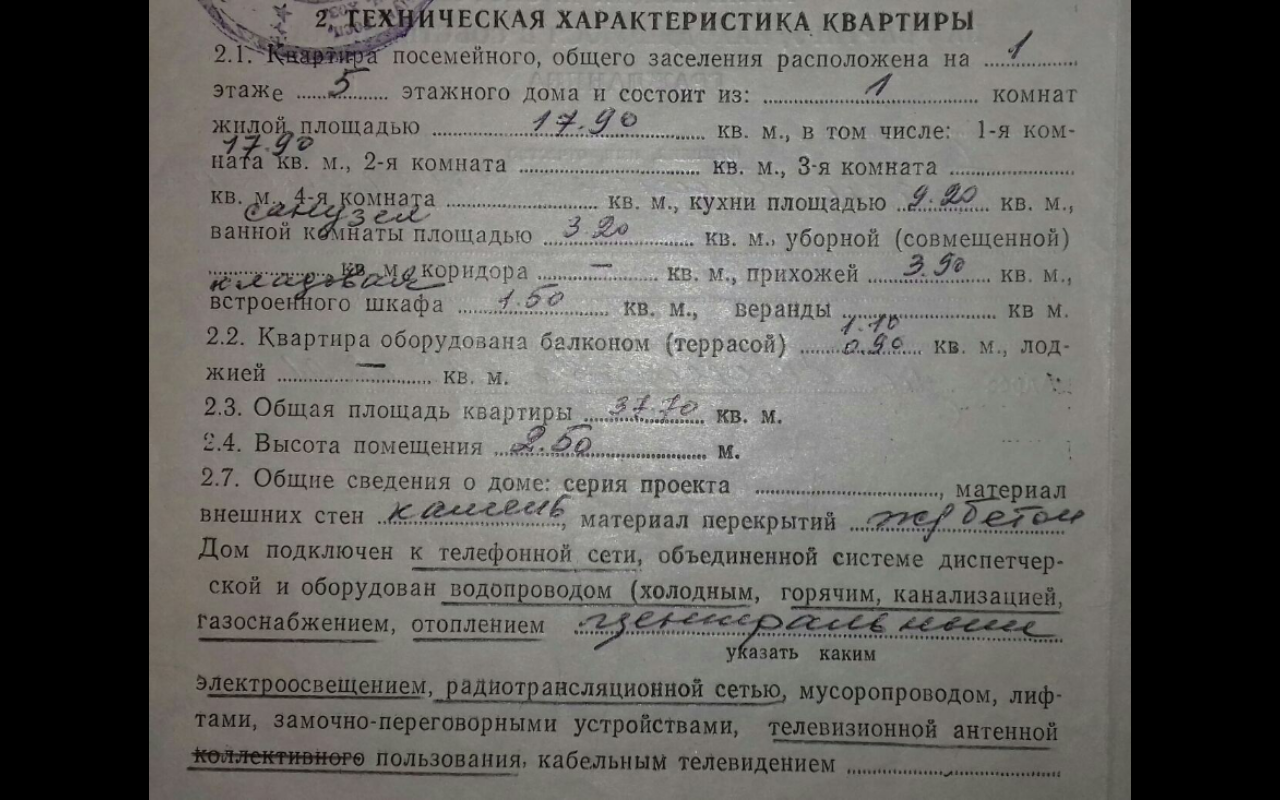 2. ТЕХНИЧЕСКАЯ ХАРАКТЕРИСТИКА КВАРТИРЫ
2.1. Квартира посемейного, общего заселения расположена на 1
этаже 5 этажного дома и состоит из: 1 комнат
жилой площадью 17.90 кв. м., в том числе: 1-я ком-
17.90
ната кв. м., 2-я комната кв. м., 3-я комната
кв. м., 4-я комната кв. м., кухни площадью 9.20 кв. м.,
санузел
ванной комнаты площадью 3.20 кв. м., уборной (совмещенной)
кв. м. коридора — кв. м., прихожей 3.90 кв. м.,
кладовая
встроенного шкафа 1.50 кв. м., веранды кв м.
1.10
2.2. Квартира оборудована балконом (террасой) 0.90 кв. м., лод-
жией — кв. м.
2.3. Общая площадь квартиры 37.70 кв. м.
2.4. Высота помещения 2.50 м.
2.7. Общие сведения о доме: серия проекта , материал
внешних стен камень, материал перекрытий жд бетон
Дом подключен к телефонной сети, объединенной системе диспетчер-
ской и оборудован водопроводом (холодным, горячим, канализацией,
газоснабжением, отоплением центральным
указать каким
электроосвещением, радиотрансляционной сетью, мусоропроводом, лиф-
тами, замочно-переговорными устройствами, телевизионной антенной
коллективного пользования, кабельным телевидением